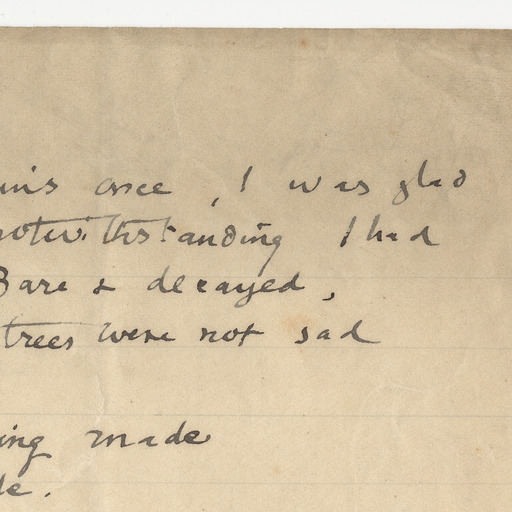 once, I was glad
notwithstanding I had
Bare & decayed,
trees were not sad
ing made
de.